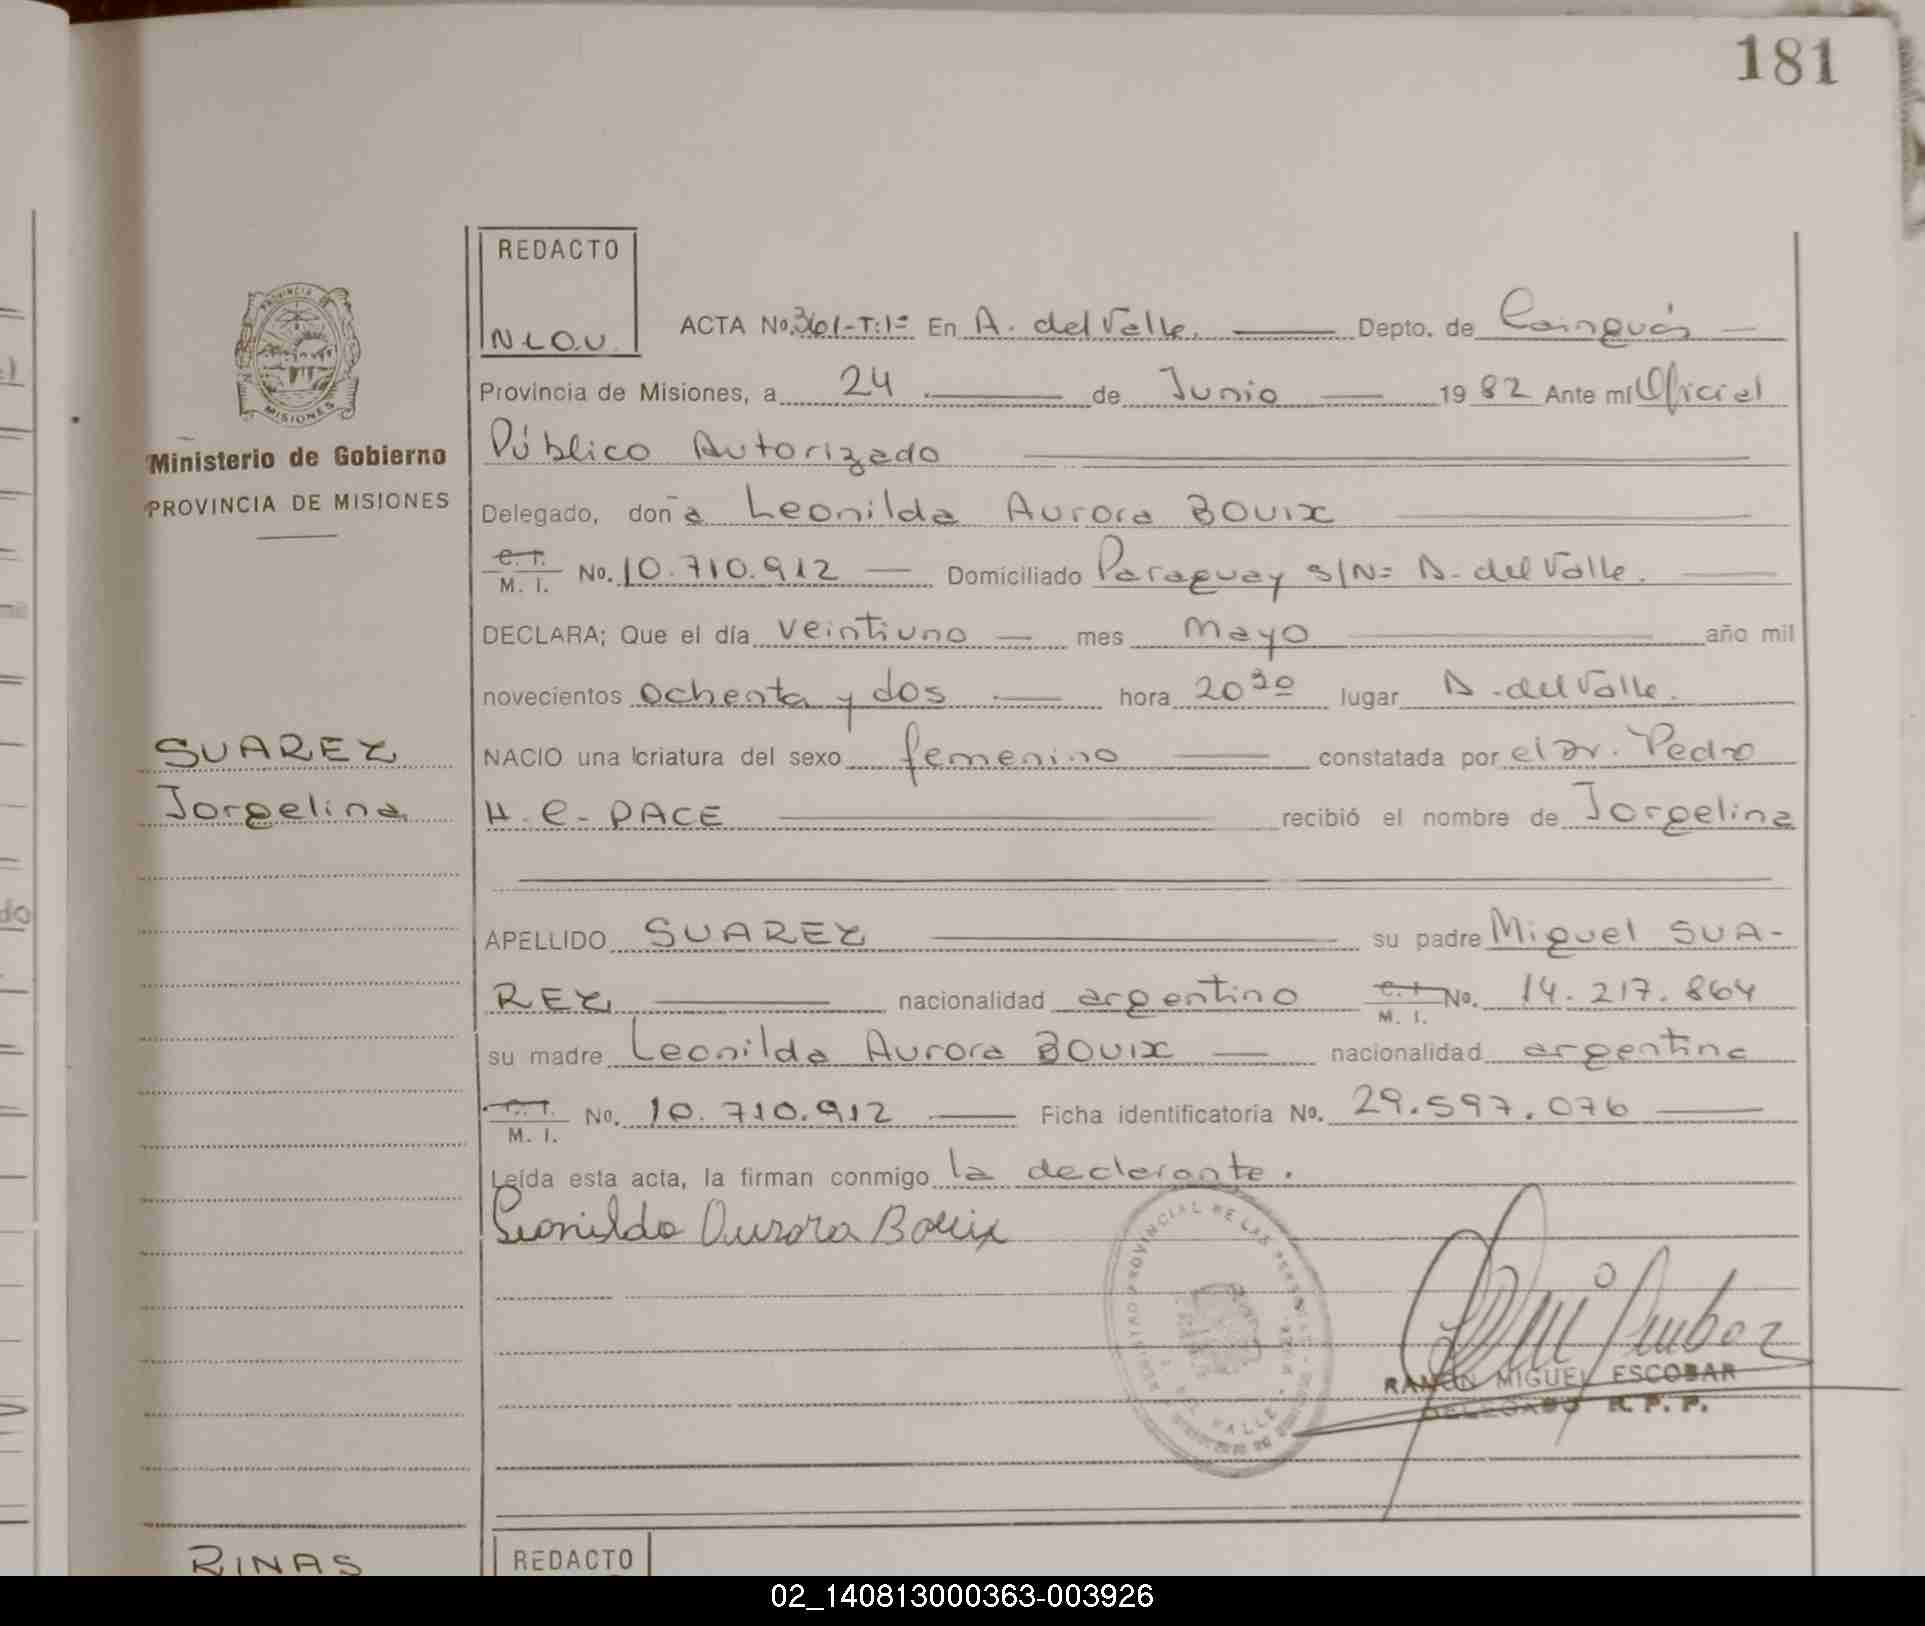 181
REDACTO
N.L.O.U.
ACTA No. 361-T:1º En A. del Valle. Depto. de Cainguás
Provincia de Misiones, a 24 de Junio 1982 Ante mi Oficial
Público Autorizado
Ministerio de Gobierno
PROVINCIA DE MISIONES
Delegado, doña Leonilda Aurora BOUIX
C. I. M. I. No. 10.710.912 Domiciliado Paraguay S/Nº A. del Valle.
DECLARA; Que el día veintiuno mes mayo año mil
novecientos ochenta y dos hora 20 lugar A. del Valle.
SUAREZ
Jorgelina
NACIO una criatura del sexo femenino constatada por el Dr. Pedro
H. C. PACE recibió el nombre de Jorgelina
APELLIDO SUAREZ su padre Miguel SUA-
REZ nacionalidad argentino C. I. M. I. No. 14.217.864
su madre Leonilda Aurora BOUIX nacionalidad argentina
C. I. M. I. No. 10.710.912 Ficha identificatoria No. 29.597.076
Leída esta acta, la firman conmigo la declarante.
Leonilda Aurora Bouix
PROVINCIAL DE LAS PERSONAS
VALLE
RAMON MIGUEL ESCOBAR
DELEGADO R. P. P.
RINAS
REDACTO
02_140813000363-003926